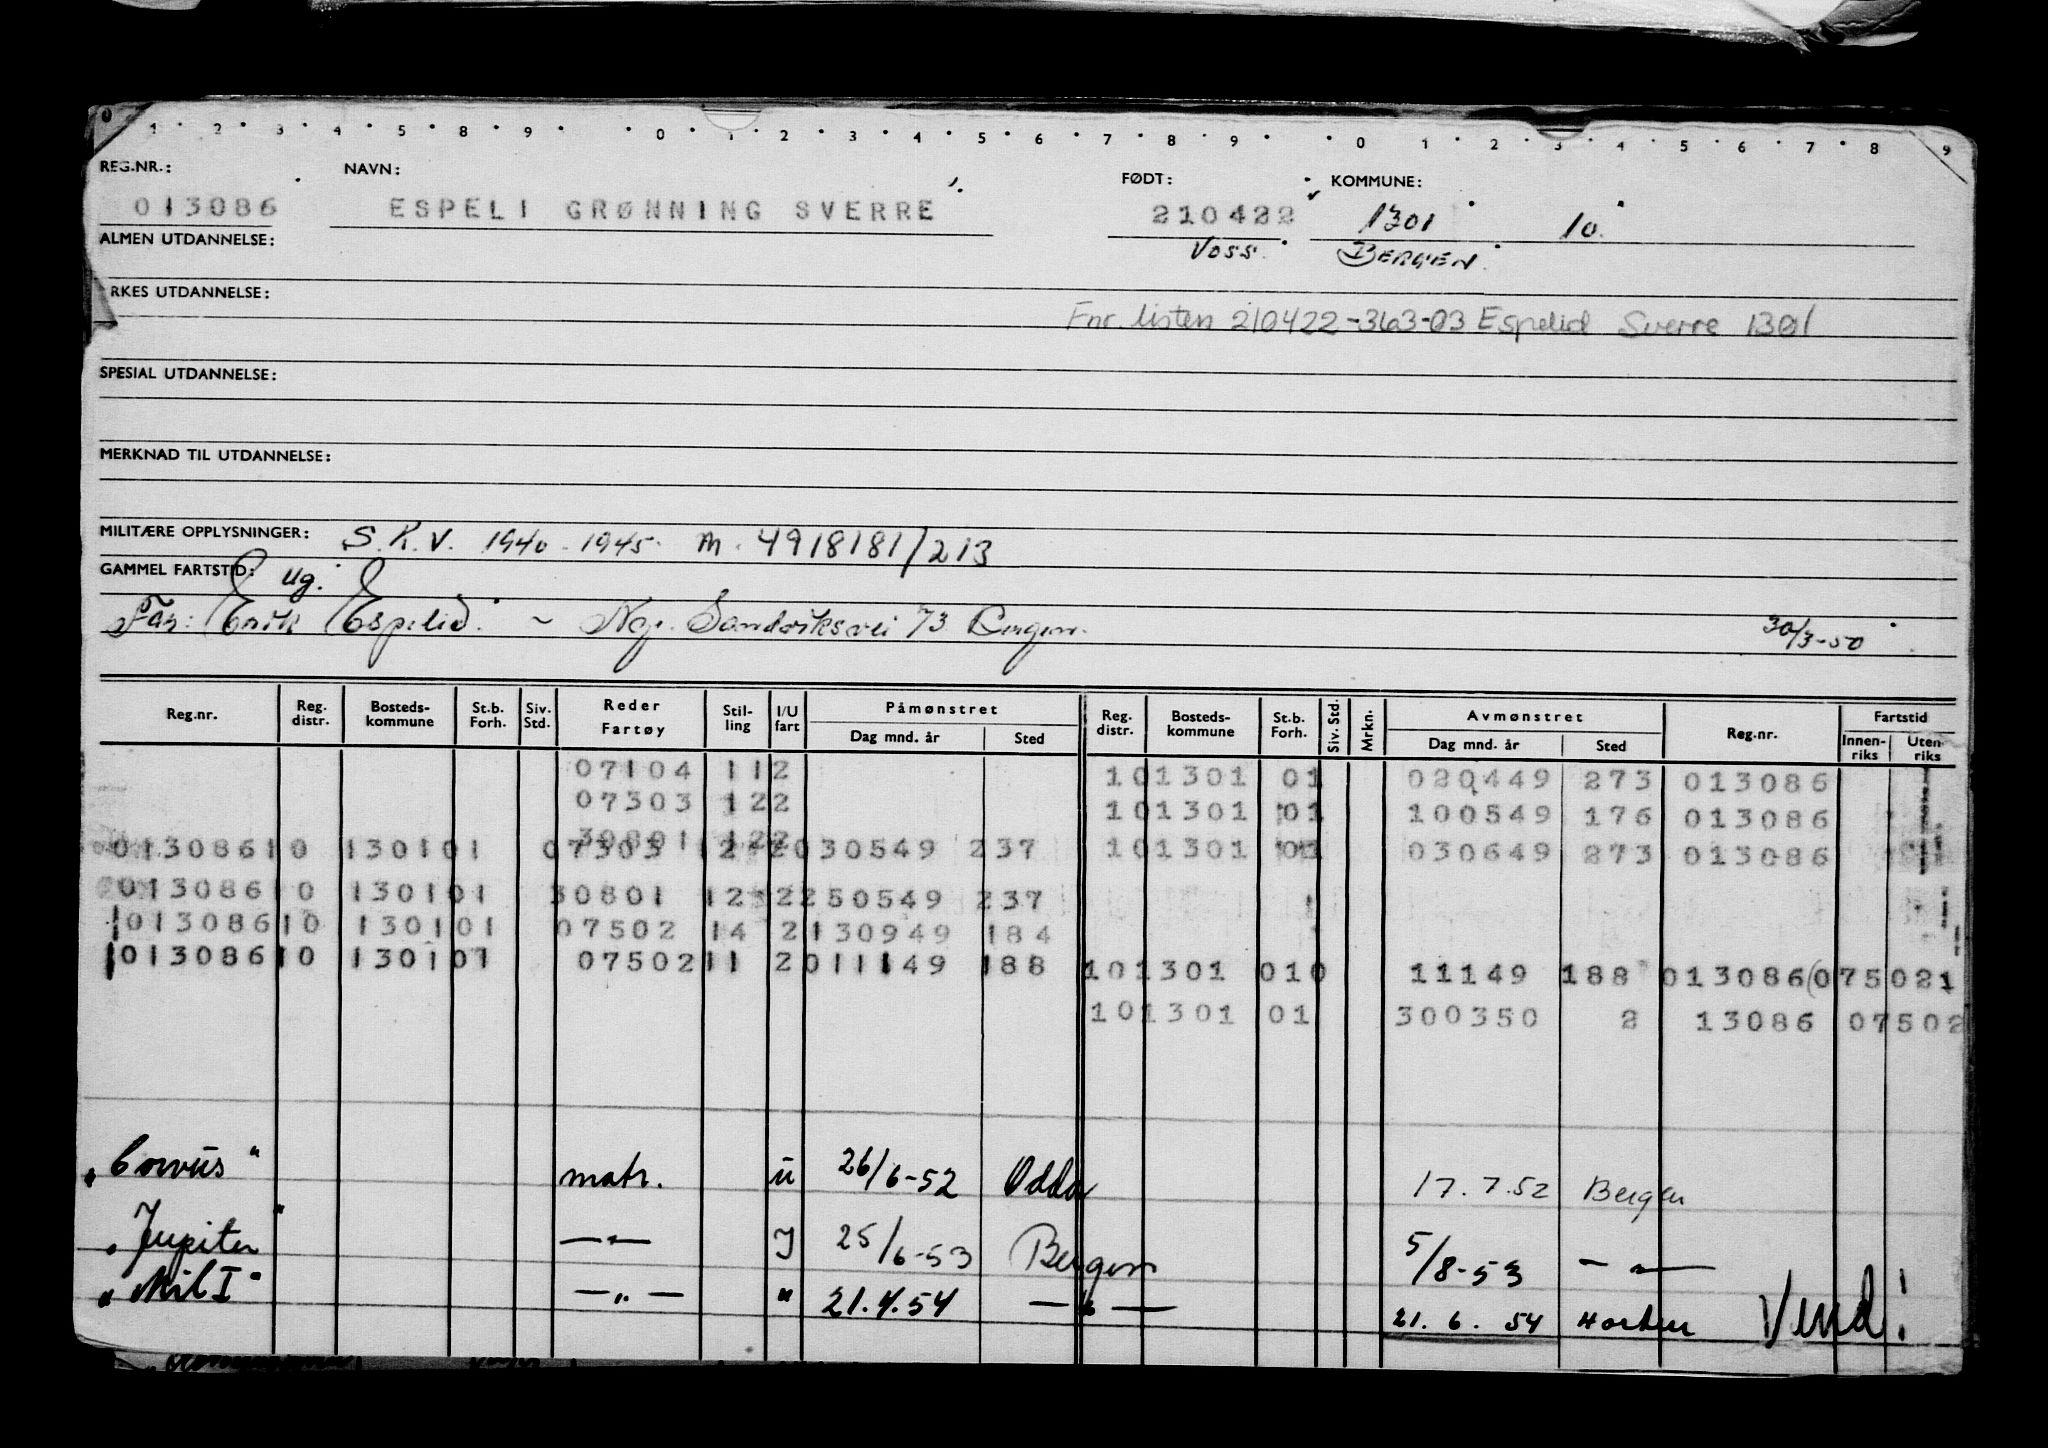 0 1 2 3 4 5 8 9 0 1 2 3 4 5 6 7 8 9 0 1 2 3 4 5 6 7 8 9
REG.NR.: NAVN: FØDT: KOMMUNE:
013086 ESPELI GRØNNING SVERRE 210422 1301 10.
ALMEN UTDANNELSE: Voss. BERGEN.
RKES UTDANNELSE:
Fnr. listen 210422-363-03 Espelid Sverre 1301
SPESIAL UTDANNELSE:
MERKNAD TIL UTDANNELSE:
MILITÆRE OPPLYSNINGER: S.K.V. 1940-1945. m. 4918181/213
GAMMEL FARTSTID: ug.
Far: Erik Espelid. ~ Sandviksvei 73 Bergen. 30/3-50
Reg.nr. Reg. distr. Bosteds-kommune St.b. Forh. Siv. Std. Reder Fartøy Stil-ling I/U fart Påmønstret Dag mnd. år Sted Reg. distr. Bosteds-kommune St.b. Forh. Siv. Std. Mrkn. Avmønstret Dag mnd. år Sted Reg.nr. Fartstid Innen-riks Uten-riks
07104 112 101301 01 020449 273 013086
07303 122 101301 01 100549 176 013086
30801 122
01308610 130101 07303 12 2030549 237 101301 01 030649 273 013086
01308610 130101 30801 12 2250549 237
01308610 130101 07502 14 2130949 184
01308610 130101 07502 11 2011149 188 101301 010 11149 188 013086 075021
101301 01 300350 2 13086 07502
"Corvus" matr. u 26/6-52 Odda 17.7.52 Bergen
"Jupiter" —"— I 25/6-53 Bergen 5/8-53 —"—
"Mil I" —"— " 21.4.54 —"— 21.6.54 Horten Vend!